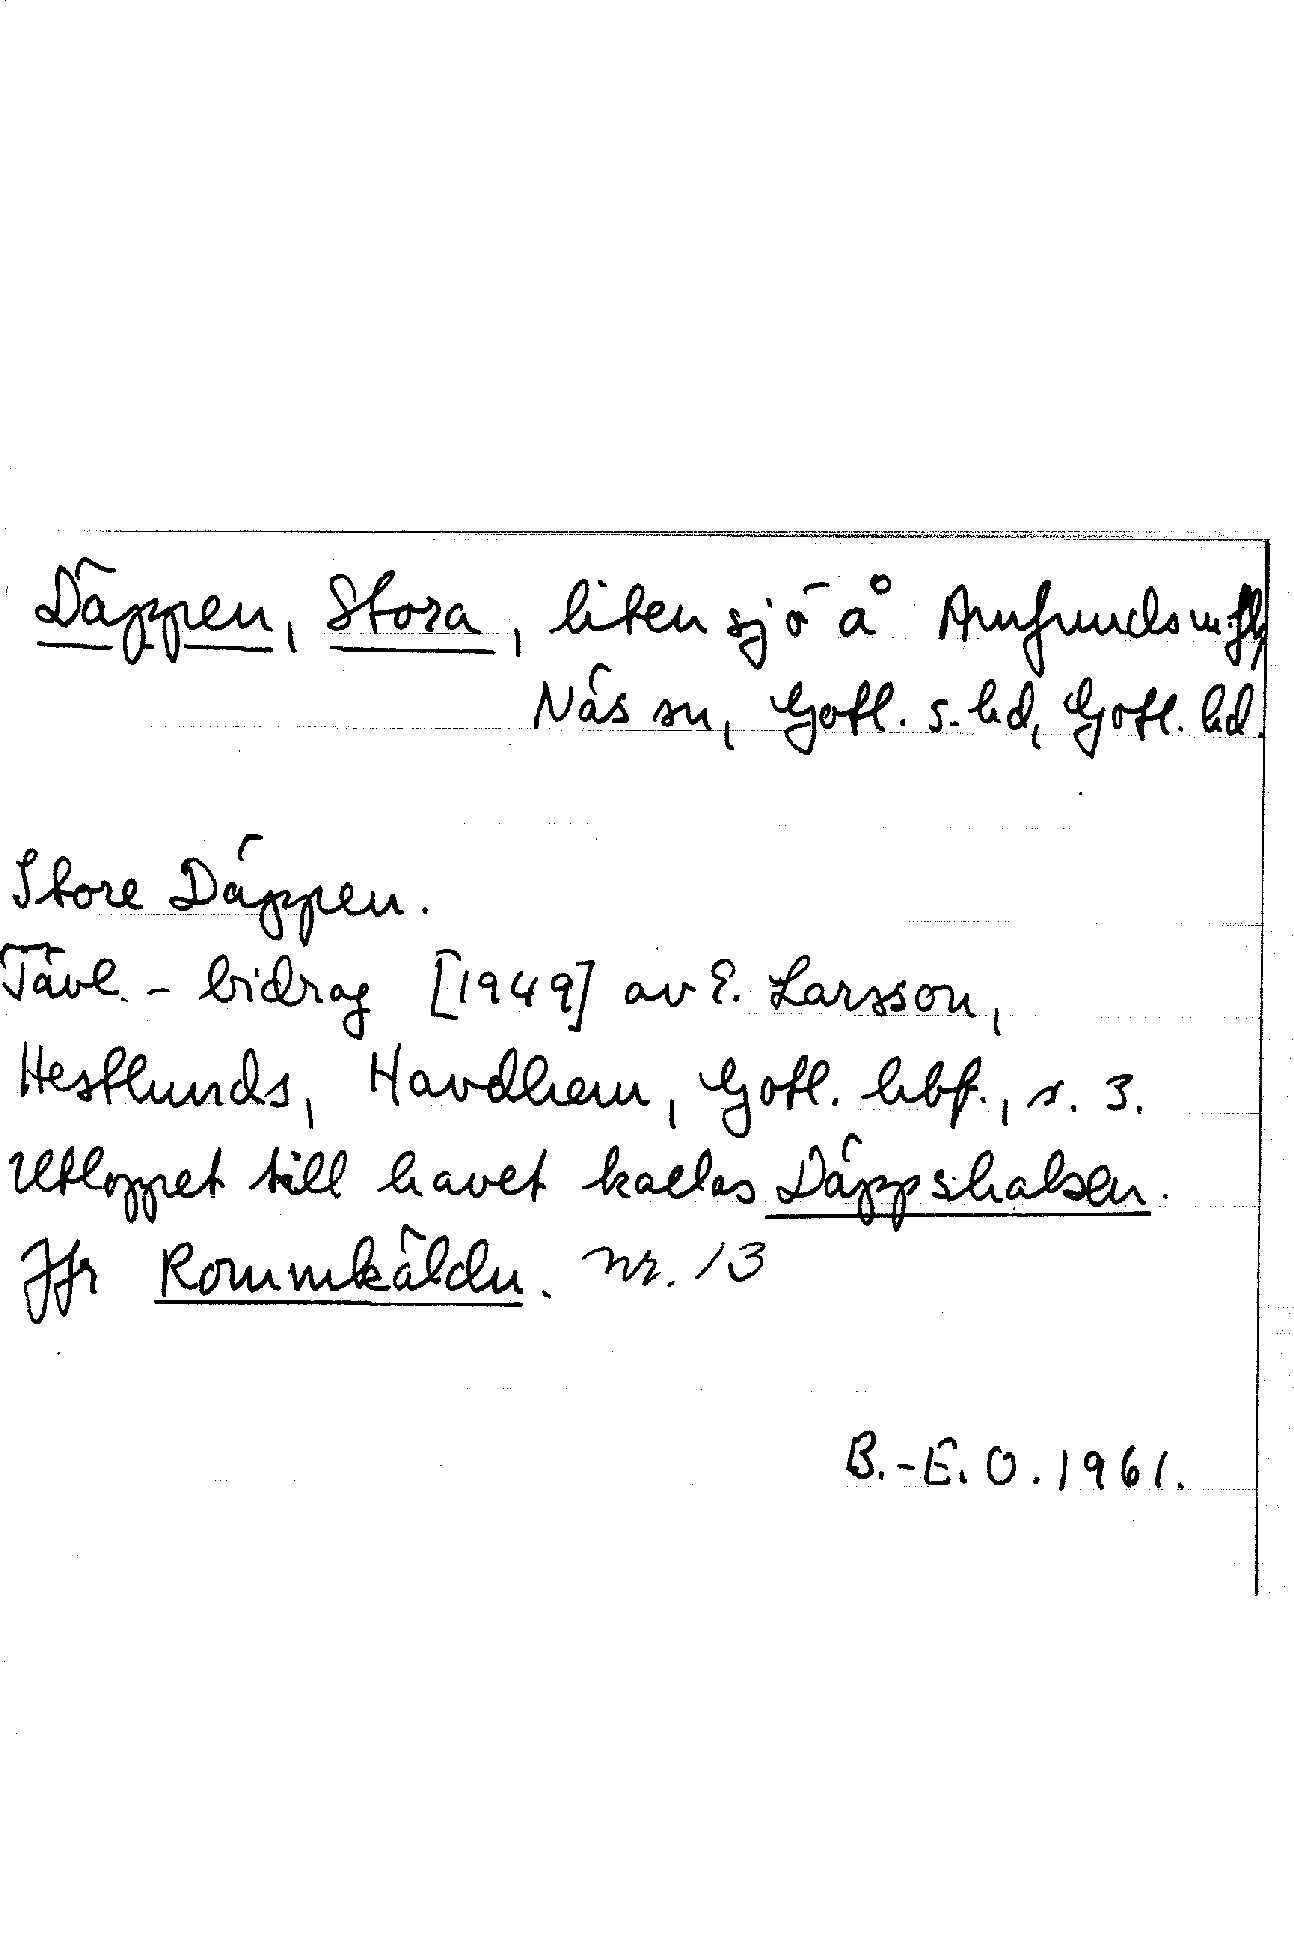 Däppen, Stora, liten sjö å Annfunds m.fl.,
Näs sn, Gotl. s. hd, Gotl. ld.
Store Däppen.
Tävl.-bidrag [1949] av E. Larsson,
Hestlunds, Havdhem, Gotl. hbf., s. 3.
Utloppet till havet kallas Däppshalsen.
Jfr Rommkäldu. nr. 13
B.-E. O. 1961.